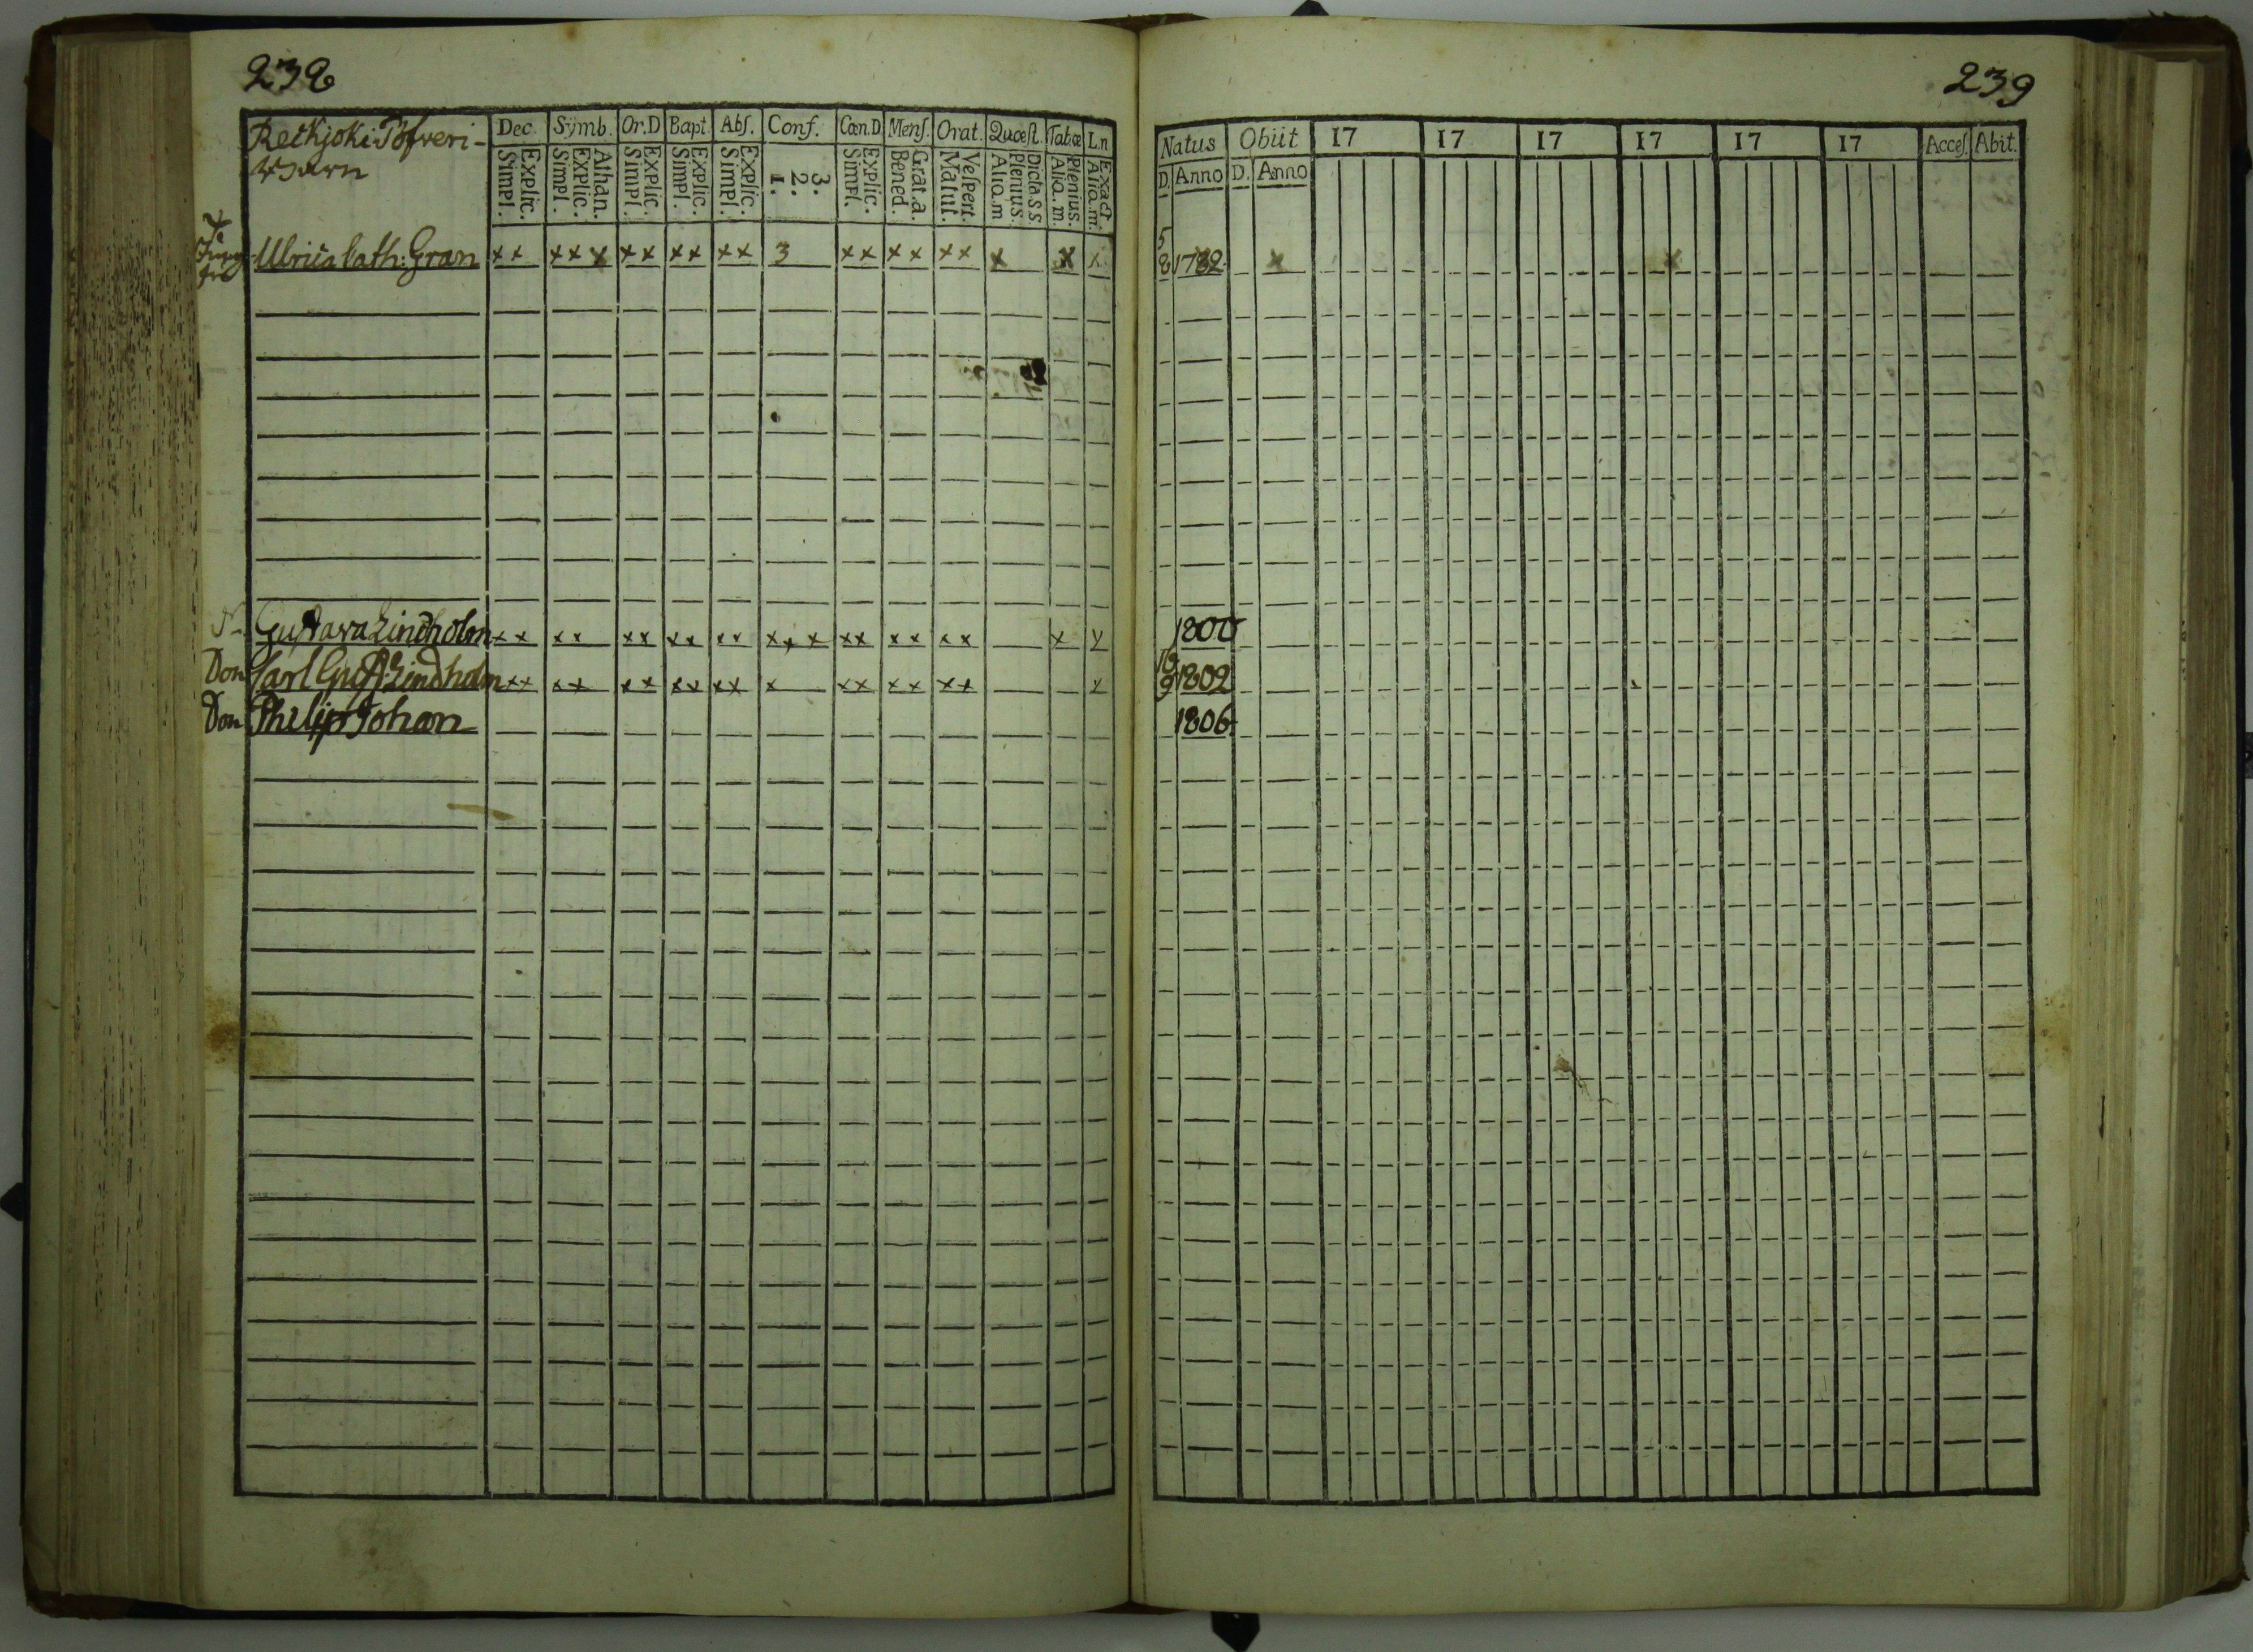 238
Reikjoki Töfveri-
Dec. Symb. Or.D Bapt. Abſ. Conf. Cœn.D Menſ. Orat. Quœſt. Tabœ L.n
Simpl. Explic. Simpl. Explic. Athan. Simpl. Explic. Simpl. Explic. Simpl. Explic. 1. 2. 3. Simpl. Explic. Bened. Grat.a. Matut. Veſpert. Aliq.m Plenius. Dicta.s.s. Aliq.m. Plenius. Aliq.m. Exact.
Ulrica Cath: Gran x x x x x x x x x x x 3 x x x x x x x x x
Gustava Lindholm x x x x x x x x x x x x x x x x x x x x y
Don Carl Gust: Lindholm x x x x x x x x x x x x x x x x x x
Don Philip Johan
239
Natus Obiit 17 17 17 17 17 17 Acceſ. Abit.
D. Anno D. Anno
5
8 1782 x x
1800
18
9 1802
1806